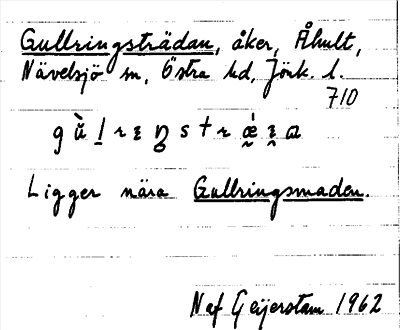 Gullringsträdan, åker, Åhult,
Nävelsjö sn, Östra hd, Jönk. l.
710
Ligger nära Gullringsmaden.
Naf Geijerstam 1962